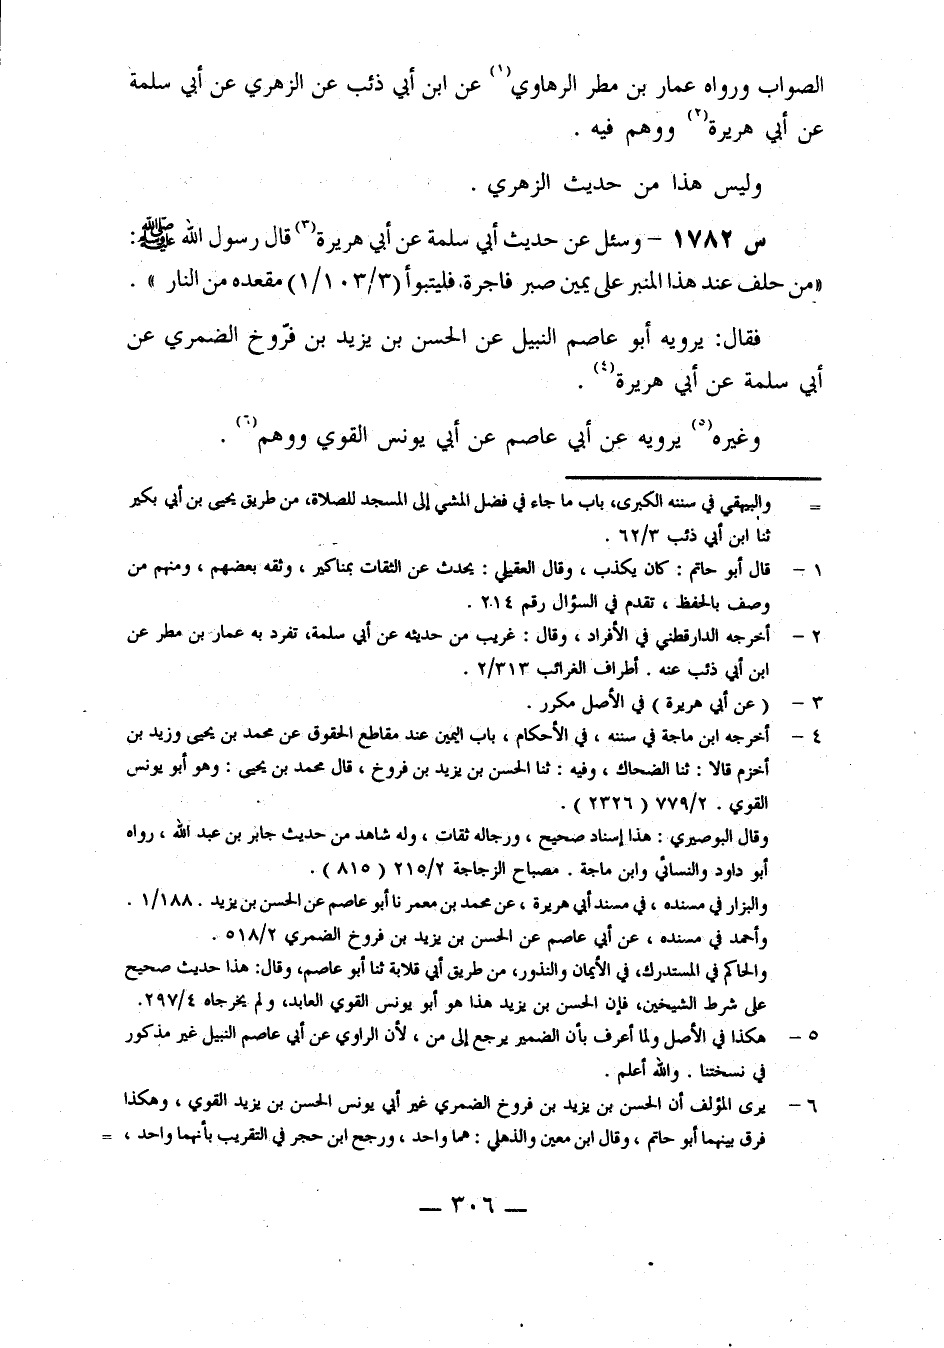 الصواب ورواه عمار بن مطر الرهاوي(١) عن ابن أبي ذئب عن الزهري عن أبي سلمة
عن أبي هريرة(٢) ووهم فيه .
وليس هذا من حديث الزهري .
س ١٧٨٢ – وسئل عن حديث أبي سلمة عن أبي هريرة(٣) قال رسول الله ﷺ:
«من حلف عند هذا المنبر على يمين صبر فاجرة، فليتبوأ (١/١٠٣/٣) مقعده من النار » .
فقال: يرويه أبو عاصم النبيل عن الحسن بن يزيد بن فرّوخ الضمري عن
أبي سلمة عن أبي هريرة(٤) .
وغيره(٥) يرويه عن أبي عاصم عن أبي يونس القوي ووهم(٦) .
= والبيهقي في سننه الكبرى، باب ما جاء في فضل المشي إلى المسجد للصلاة، من طريق يحيى بن أبي بكير
ثنا ابن أبي ذئب ٦٢/٣ .
١ – قال أبو حاتم : كان يكذب ، وقال العقيلي : يحدث عن الثقات بمناكير ، وثقه بعضهم ، ومنهم من
وصف بالحفظ ، تقدم في السؤال رقم ٢٠١٤ .
٢ – أخرجه الدارقطني في الأفراد ، وقال : غريب من حديثه عن أبي سلمة، تفرد به عمار بن مطر عن
ابن أبي ذئب عنه . أطراف الغرائب ٢/٣١٣ .
٣ – ( عن أبي هريرة ) في الأصل مكرر .
٤ – أخرجه ابن ماجة في سننه ، في الأحكام ، باب اليمين عند مقاطع الحقوق عن محمد بن يحيى وزيد بن
أخزم قالا : ثنا الضحاك ، وفيه : ثنا الحسن بن يزيد بن فروخ ، قال محمد بن يحيى : وهو أبو يونس
القوي . ٧٧٩/٢ ( ٢٣٢٦ ) .
وقال البوصيري : هذا إسناد صحيح ، ورجاله ثقات ، وله شاهد من حديث جابر بن عبد الله ، رواه
أبو داود والنسائي وابن ماجة . مصباح الزجاجة ٢١٥/٢ ( ٨١٥ ) .
والبزار في مسنده ، في مسند أبي هريرة ، عن محمد بن معمر نا أبو عاصم عن الحسن بن يزيد . ١/١٨٨ .
وأحمد في مسنده ، عن أبي عاصم عن الحسن بن يزيد بن فروخ الضمري ٥١٨/٢ .
والحاكم في المستدرك، في الأيمان والنذور، من طريق أبي قلابة ثنا أبو عاصم، وقال: هذا حديث صحيح
على شرط الشيخين، فإن الحسن بن يزيد هذا هو أبو يونس القوي العابد، ولم يخرجاه ٢٩٧/٤.
٥ – هكذا في الأصل ولما أعرف بأن الضمير يرجع إلى من ، لأن الراوي عن أبي عاصم النبيل غير مذكور
في نسختنا . والله أعلم .
٦ – يرى المؤلف أن الحسن بن يزيد بن فروخ الضمري غير أبي يونس الحسن بن يزيد القوي ، وهكذا
فرق بينهما أبو حاتم ، وقال ابن معين والذهلي : هما واحد ، ورجح ابن حجر في التقريب بأنهما واحد ، =
— ٣٠٦ —